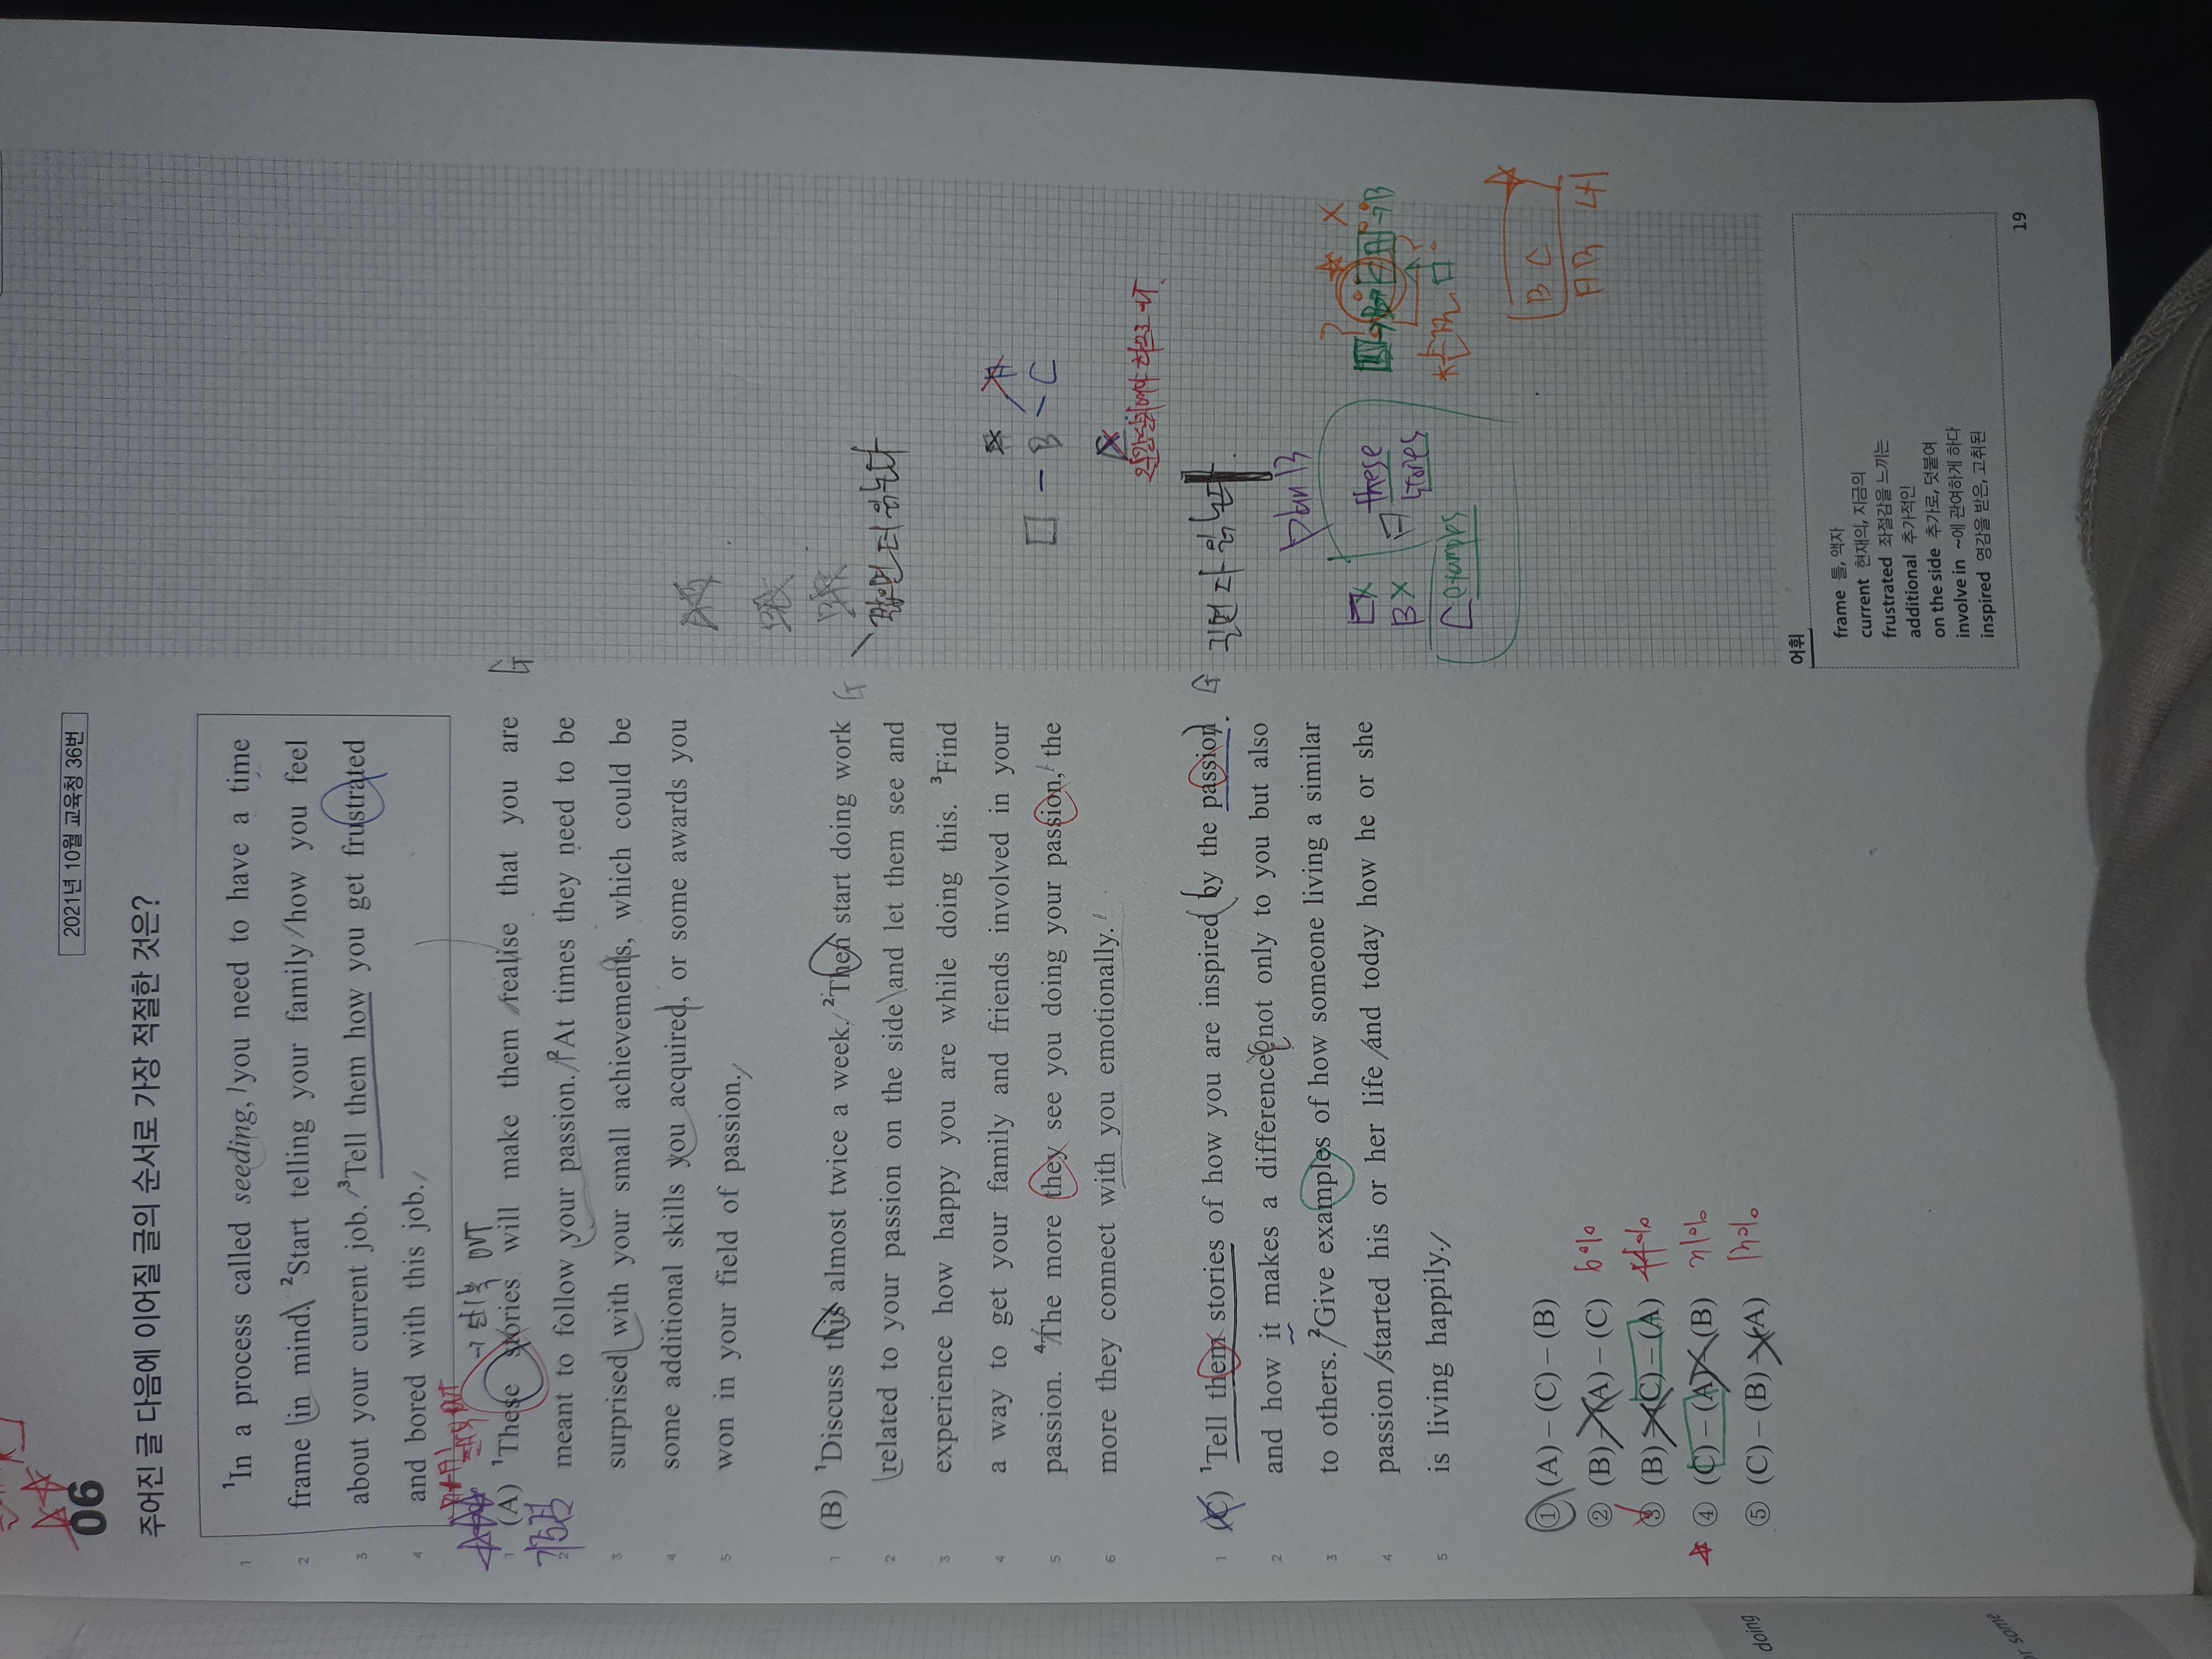 06
2021년 10월 교육청 36번
주어진 글 다음에 이어질 글의 순서로 가장 적절한 것은?
1 ¹In a process called seeding, you need to have a time
2 frame in mind. ²Start telling your family how you feel
3 about your current job. ³Tell them how you get frustrated
4 and bored with this job.
1 (A) ¹These stories will make them realise that you are
2 meant to follow your passion. ²At times they need to be
3 surprised with your small achievements, which could be
4 some additional skills you acquired, or some awards you
5 won in your field of passion.
1 (B) ¹Discuss this almost twice a week. ²Then start doing work
2 related to your passion on the side and let them see and
3 experience how happy you are while doing this. ³Find
4 a way to get your family and friends involved in your
5 passion. ⁴The more they see you doing your passion, the
6 more they connect with you emotionally.
1 (C) ¹Tell them stories of how you are inspired by the passion
2 and how it makes a difference not only to you but also
3 to others. ²Give examples of how someone living a similar
4 passion started his or her life and today how he or she
5 is living happily.
① (A) – (C) – (B)
② (B) – (A) – (C) 6%
③ (B) – (C) – (A)
④ (C) – (A) – (B)
⑤ (C) – (B) – (A)
짧으면 더 읽는다
□ – B – C
길면 자 읽는다
□X these
BX stories
C examples
B C
어휘
frame 틀, 액자
current 현재의, 지금의
frustrated 좌절감을 느끼는
additional 추가적인
on the side 추가로, 덧붙여
involve in ~에 관여하게 하다
inspired 영감을 받은, 고취된
19
doing
some